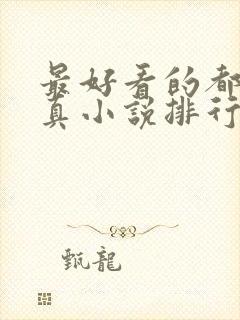 最好看的都
真小說排行
甄龍